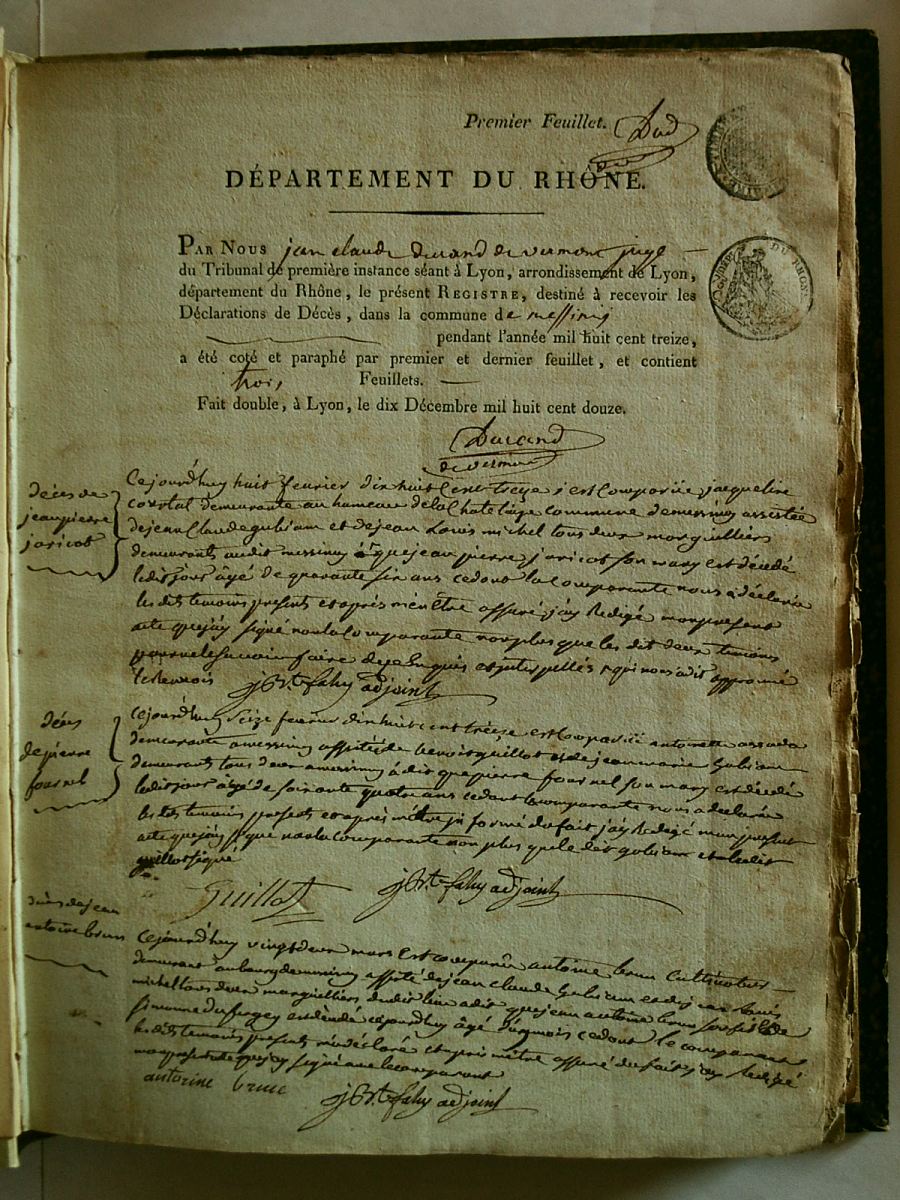 Premier Feuillet.
DÉPARTEMENT DU RHÔNE.
PAR NOUS jean claude durand de vermont juge
du Tribunal de première instance séant à Lyon, arrondissement de Lyon,
département du Rhône, le présent REGISTRE, destiné à recevoir les
Déclarations de Décès, dans la commune de messimy
pendant l'année mil huit cent treize,
a été coté et paraphé par premier et dernier feuillet, et contient
trois Feuillets.
Fait double, à Lyon, le dix Décembre mil huit cent douze.
Durand
de vermont
décès de
jean pierre
jaricot
Cejourdhuy huit fevrier dix huit Cent treize est Comparüe jacqueline
demeurante au hameau de la Chatelaize commune demessimy assistée
de jean Claude gubian et de jean Louis michel tous deux marguilliers
demeurants audit messimy que jean pierre jaricot son mary est décédé
ledit jour âgé de quarante six ans cedont la Comparante nous a déclarée
les dits temoins presents et après m'en Etre assuré jay Redigé mon present
acte que jay signé non la Comparante non plus que les dit deux temoins
pour ne le Savoir faire de ce Enquis
jB.te fahy adjoint
décès
de pierre
fournel
cejourdhuy Seize fevrier dix huit cent treize est Comparüe antoinette
demeurante a messimy assistée de benoit guillot et de jean marie gubian
demeurants tous deux a messimy a dit que pierre fournel son mary est décédé
ledit jour âgé de soixante quatre ans cedont la comparante nous a declarée
les dits temoins presents et après m'être du fait jay Redigé mon present
acte que jay signé non la Comparante non plus que le dit gubian
guillot signé
Guillot
jB.te fahy adjoint
décès de jean
antoine brun
Cejourdhuy vingt deux mars est comparu antoine brun Cultivateur
demeurant au bourg de messimy assisté de jean claude Gubian et de jean Louis
michel tous deux marguilliers dudit lieu a dit que jean antoine brun son fils & de
simonne est décédé cejourdhuy âgé cedont le comparant
les dits temoins presents m'a déclaré et après m'être assuré du fait jay Redigé
mon present acte que jay signé avec le comparant
antoine brun
jB.te fahy adjoint